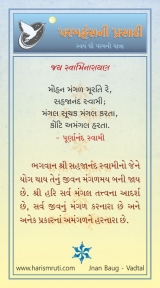 પરમહંસની પ્રસાદી
સ્વયં થી પરમની યાત્રા
જય સ્વામિનારાયણ
મોહન મંગળ મૂરતિ રે,
સહજાનંદ સ્વામી;
મંગલ સૂચક મંગલ કરતા,
કોટિ અમંગલ હરતા.
- પૂર્ણાનંદ સ્વામી
ભગવાન શ્રી સહજાનંદ સ્વામીનો જેને
યોગ થાય તેનું જીવન મંગળમય બની જાય
છે. શ્રી હરિ સર્વ મંગલ તત્ત્વના આદર્શ
છે, સર્વનું મંગળ કરનારા છે અને
અનેક પ્રકારનાં અમંગળને હરનારા છે.
www.harismruti.com Jnan Baug - Vadtal